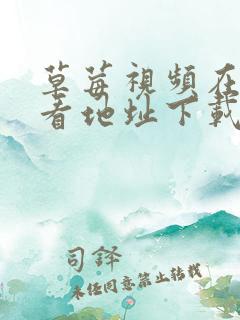 草莓視頻在
看地址下載
司鐸
未經同意禁止轉載